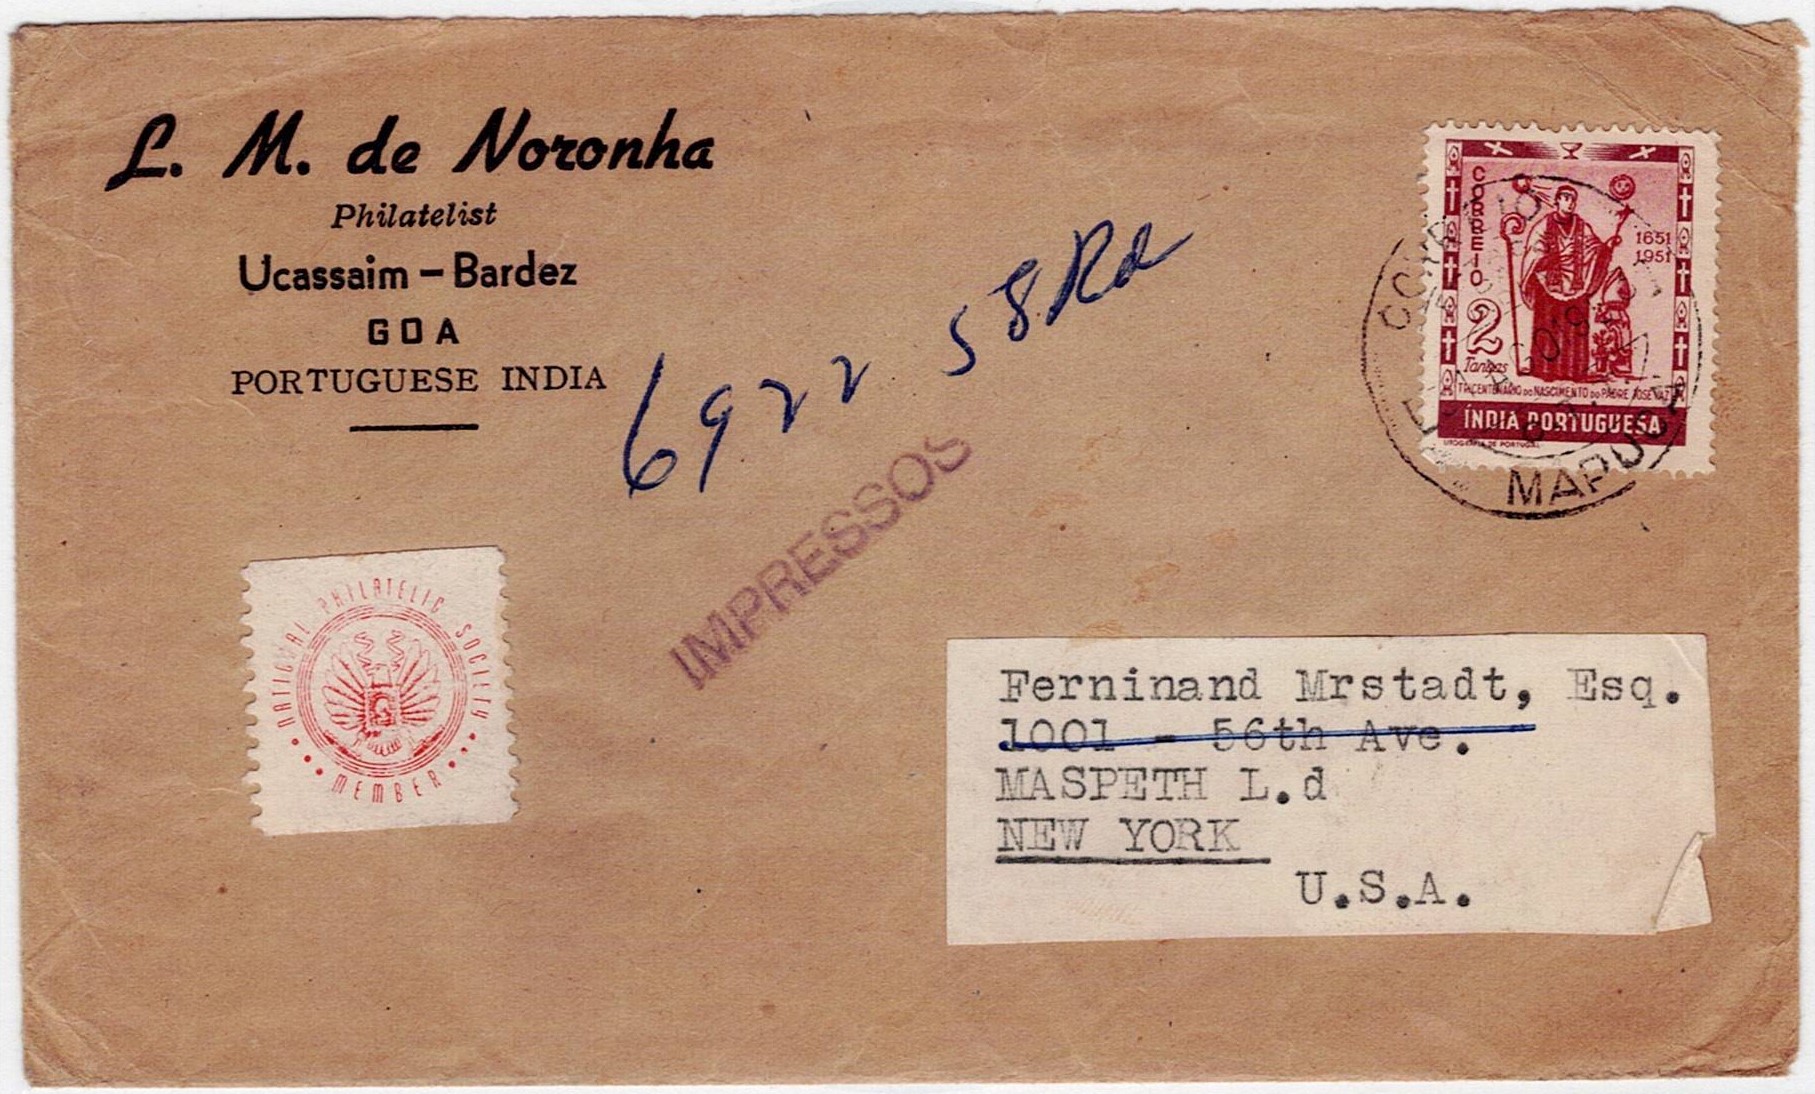 L. M. de Noronha
Philatelist
Ucassaim – Bardez
GOA
PORTUGUESE INDIA
6922 58 Rd
IMPRESSOS
CORREIO
1651
1951
2
Tangas
TRICENTENARIO DO NASCIMENTO DO PADRE JOSE VAZ
ÍNDIA PORTUGUESA
MAPUSA
NATIONAL PHILATELIC SOCIETY
MEMBER
Ferninand Mrstadt, Esq.
1001 - 56th Ave.
MASPETH L.d
NEW YORK
U.S.A.